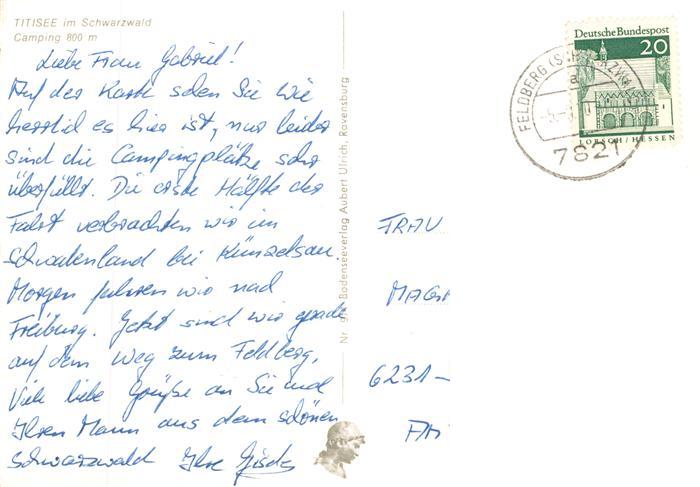 TITISEE im Schwarzwald
Camping 800 m
Liebe Frau Gabriel!
Auf der Karte sehen Sie wie
herrlich es hier ist, nur leider
sind die Campingplätze sehr
überfüllt. Die erste Hälfte der
Fahrt verbrachten wir im
Schwabenland bei Künzelsau.
Morgen fahren wir nach
Freiburg. Jetzt sind wir gerade
auf dem Weg zum Feldberg.
Viele liebe Grüße an Sie und
Ihren Mann aus dem schönen
Schwarzwald Ihre
Bodenseeverlag Aubert Ulrich, Ravensburg
Deutsche Bundespost
20
LORSCH/HESSEN
FELDBERG (SCHWARZW)
a
7821
FRAU
MAGR
6231-